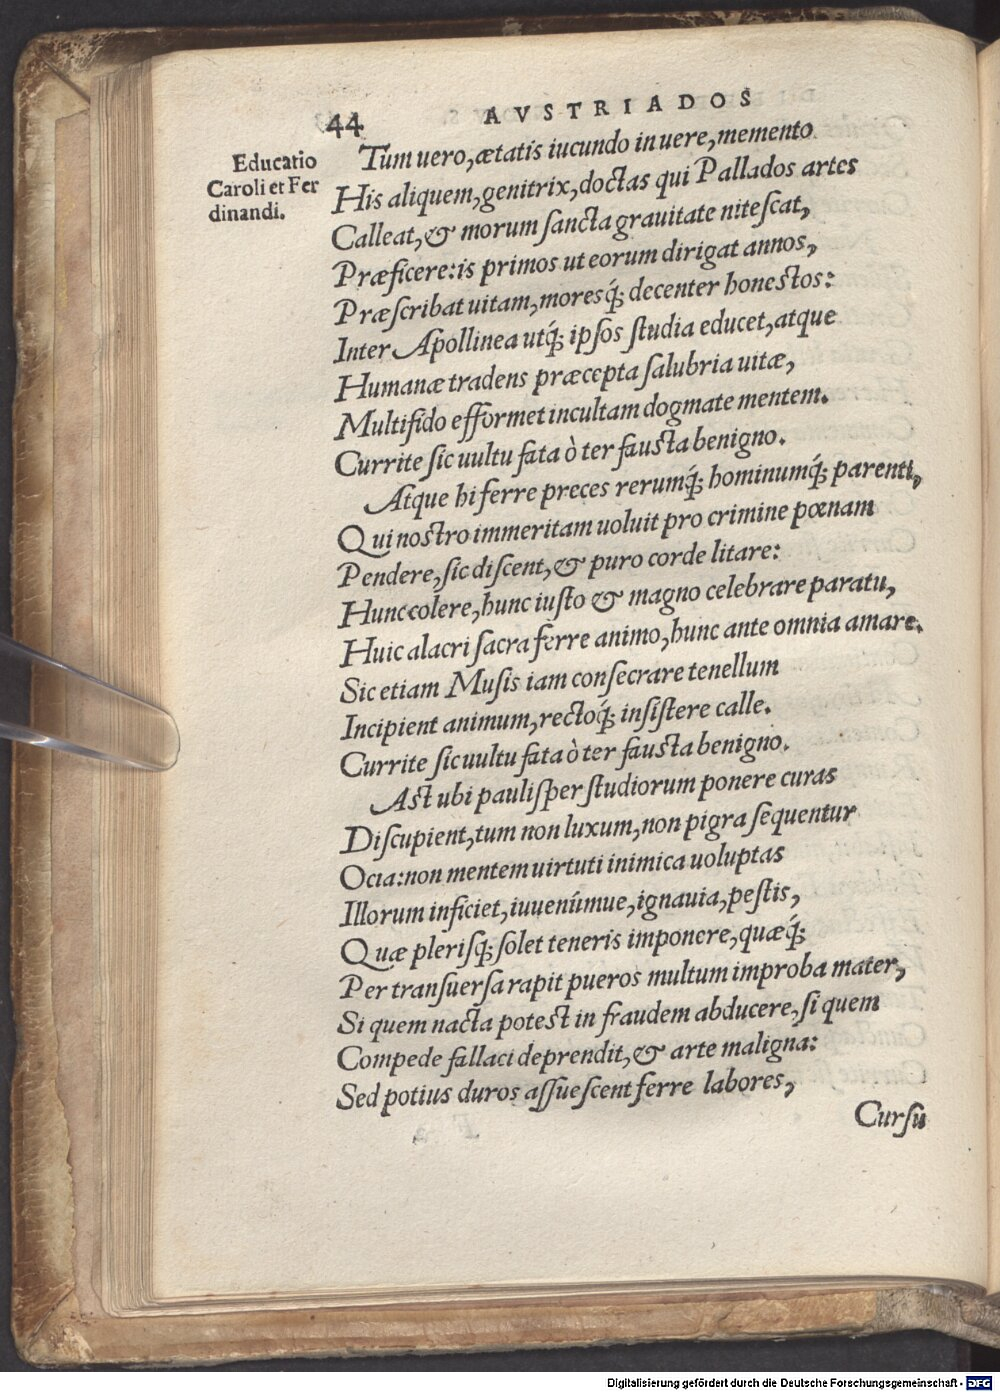 44 AVSTRIADOS
Educatio
Caroli et Fer
dinandi.
Tum uero, ætatis iucundo in uere, memento
His aliquem, genitrix, doctas qui Pallados artes
Calleat, & morum sancta grauitate nitescat,
Præficere: is primos ut eorum dirigat annos,
Præscribat uitam, moresq́; decenter honestos:
Inter Apollinea utq́; ipsos studia educet, atque
Humanæ tradens præcepta salubria uitæ,
Multifido efformet incultam dogmate mentem.
Currite sic uultu fata ò ter fausta benigno.
Atque hi ferre preces rerumq́; hominumq́; parenti,
Qui nostro immeritam uoluit pro crimine pœnam
Pendere, sic discent, & puro corde litare:
Hunc colere, hunc iusto & magno celebrare paratu,
Huic alacri sacra ferre animo, hunc ante omnia amare.
Sic etiam Musis iam consecrare tenellum
Incipient animum, rectoq́; insistere calle.
Currite sic uultu fata ò ter fausta benigno.
Ast ubi paulisper studiorum ponere curas
Discupient, tum non luxum, non pigra sequentur
Ocia: non mentem uirtuti inimica uoluptas
Illorum inficiet, iuuenúmue, ignauia, pestis,
Quæ plerisq́; solet teneris imponere, quæq́;
Per transuersa rapit pueros multum improba mater,
Si quem nacta potest in fraudem abducere, si quem
Compede fallaci deprendit, & arte maligna:
Sed potius duros assuescent ferre labores,
Cursu
Digitalisierung gefördert durch die Deutsche Forschungsgemeinschaft - DFG